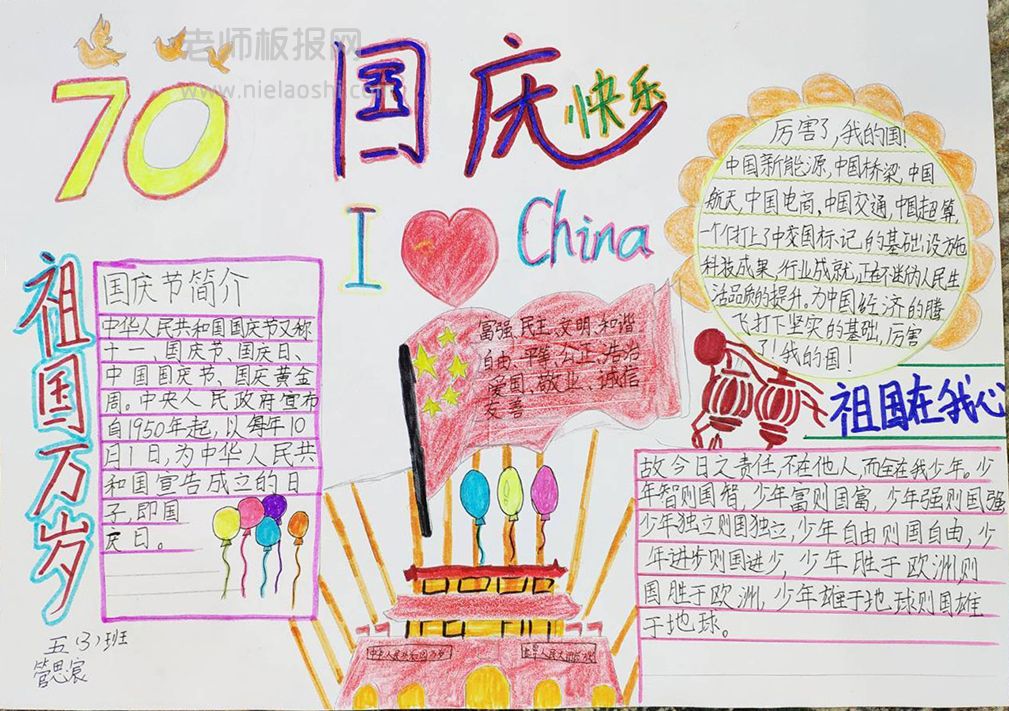 老师板报网
www.nielaoshi.com
70
国庆快乐
I China
祖国万岁
国庆节简介
中华人民共和国国庆节又称
十一、国庆节、国庆日、
中国国庆节、国庆黄金
周。中央人民政府宣布
自1950年起,以每年10
月1日,为中华人民共
和国宣告成立的日
子,即国
庆日。
五(3)班
富强、民主、文明、和谐
自由、平等、公正、法治
爱国、敬业、诚信
友善
厉害了,我的国!
中国新能源,中国桥梁,中国
航天,中国电商,中国交通,中国超算,
一个个打上了中国标记的基础设施
科技成果、行业成就,正在
活品质的提升。为中国经济的腾
飞打下坚实的基础,厉害
了!我的国!
祖国在我心
故今日之责任,不在他人,而全在我少年。少
年智则国智,少年富则国富,少年强则国强
少年独立则国独立,少年自由则国自由,少
年进步则国进步,少年胜于欧洲则
国胜于欧洲,少年雄于地球则国雄
于地球。